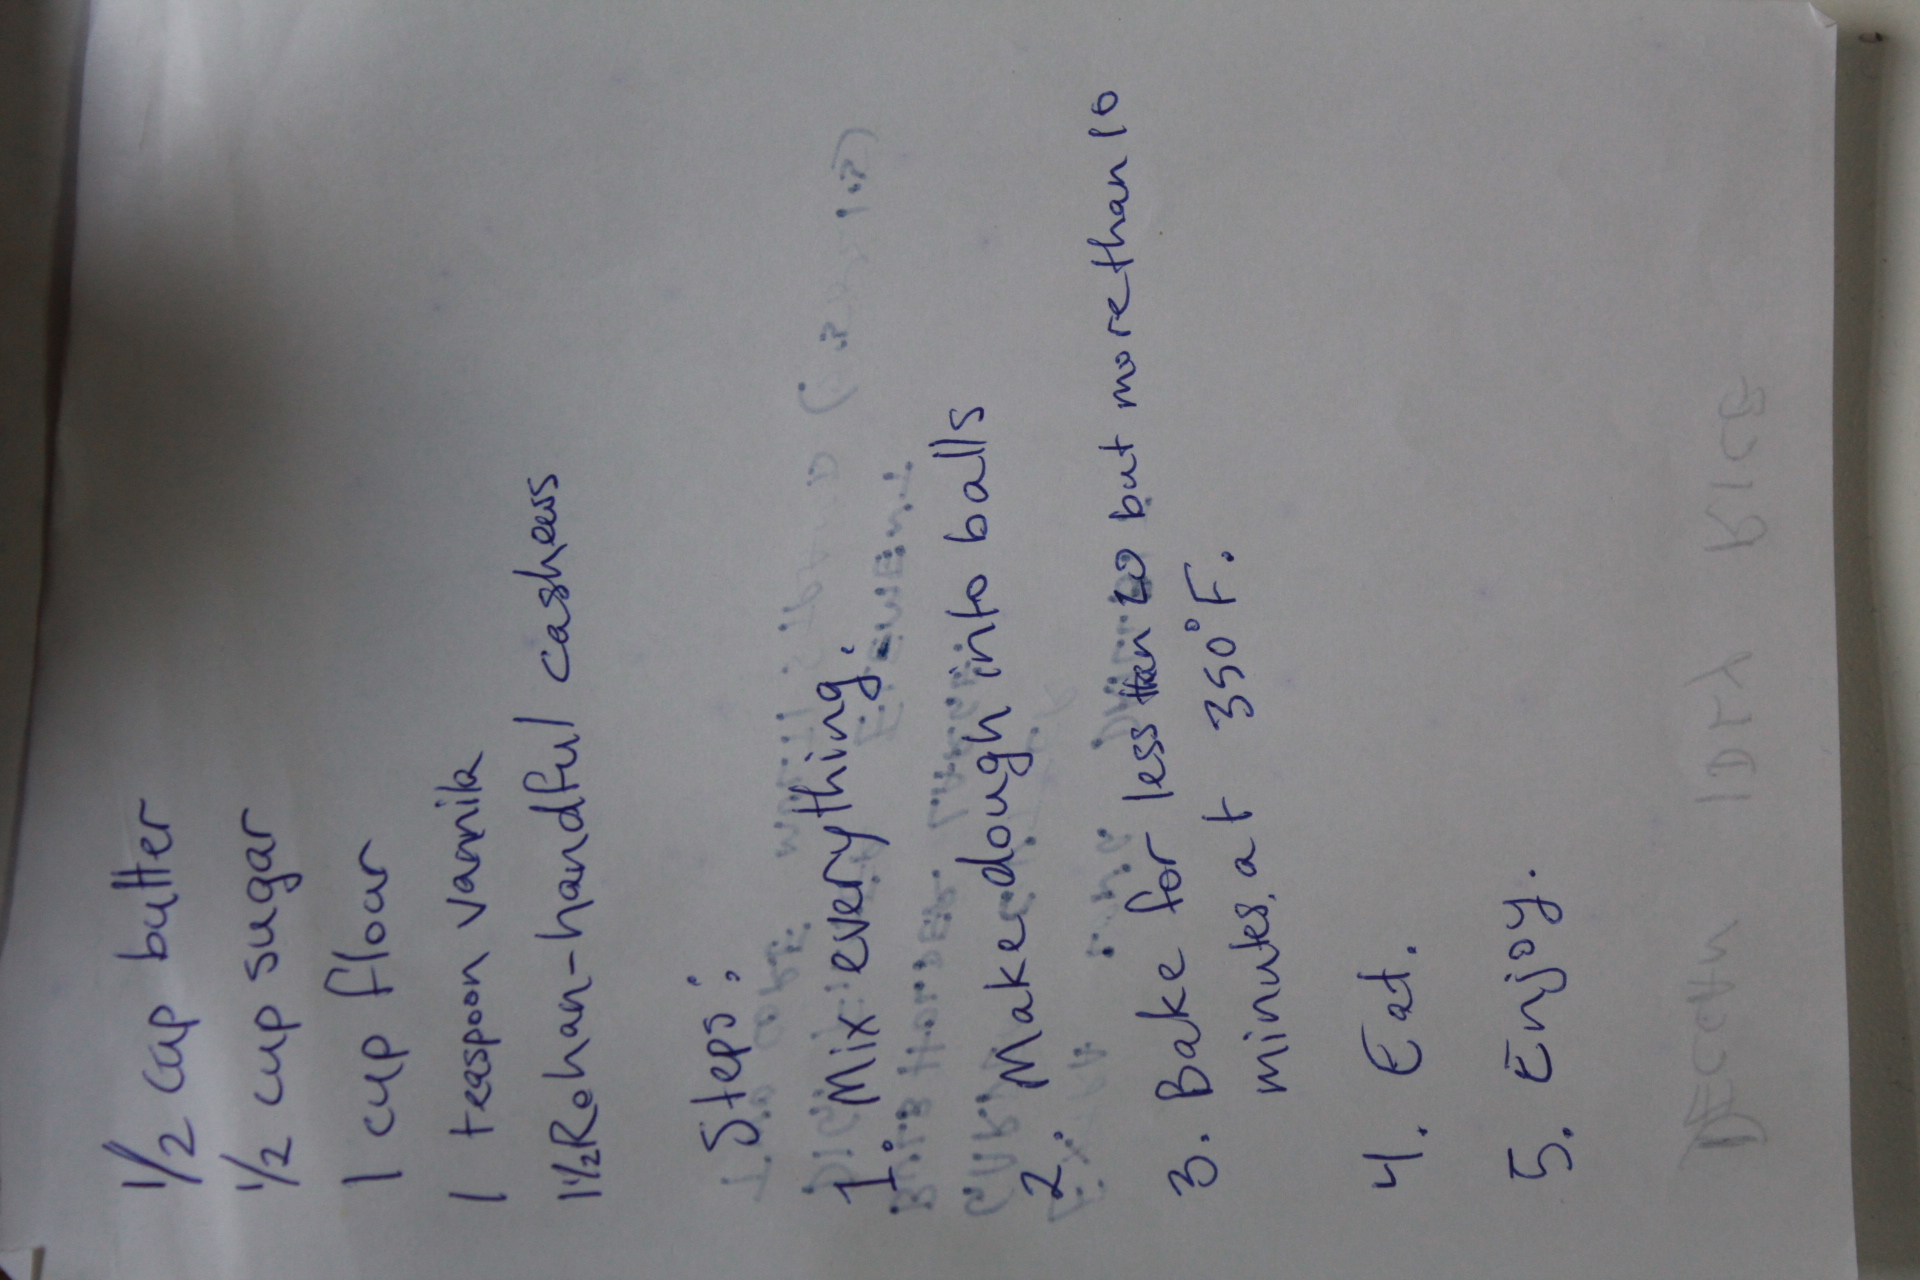 1/2 cup butter
1/2 cup sugar
1 cup flour
1 teaspoon vanila
1 1/2 Rohan-handful cashews
Steps:
1. Mix everything.
2. Make dough into balls
3. Bake for less than 20 but more than 10
minutes, at 350°F.
4. Eat.
5. Enjoy.
DECCAN IDLY RICE